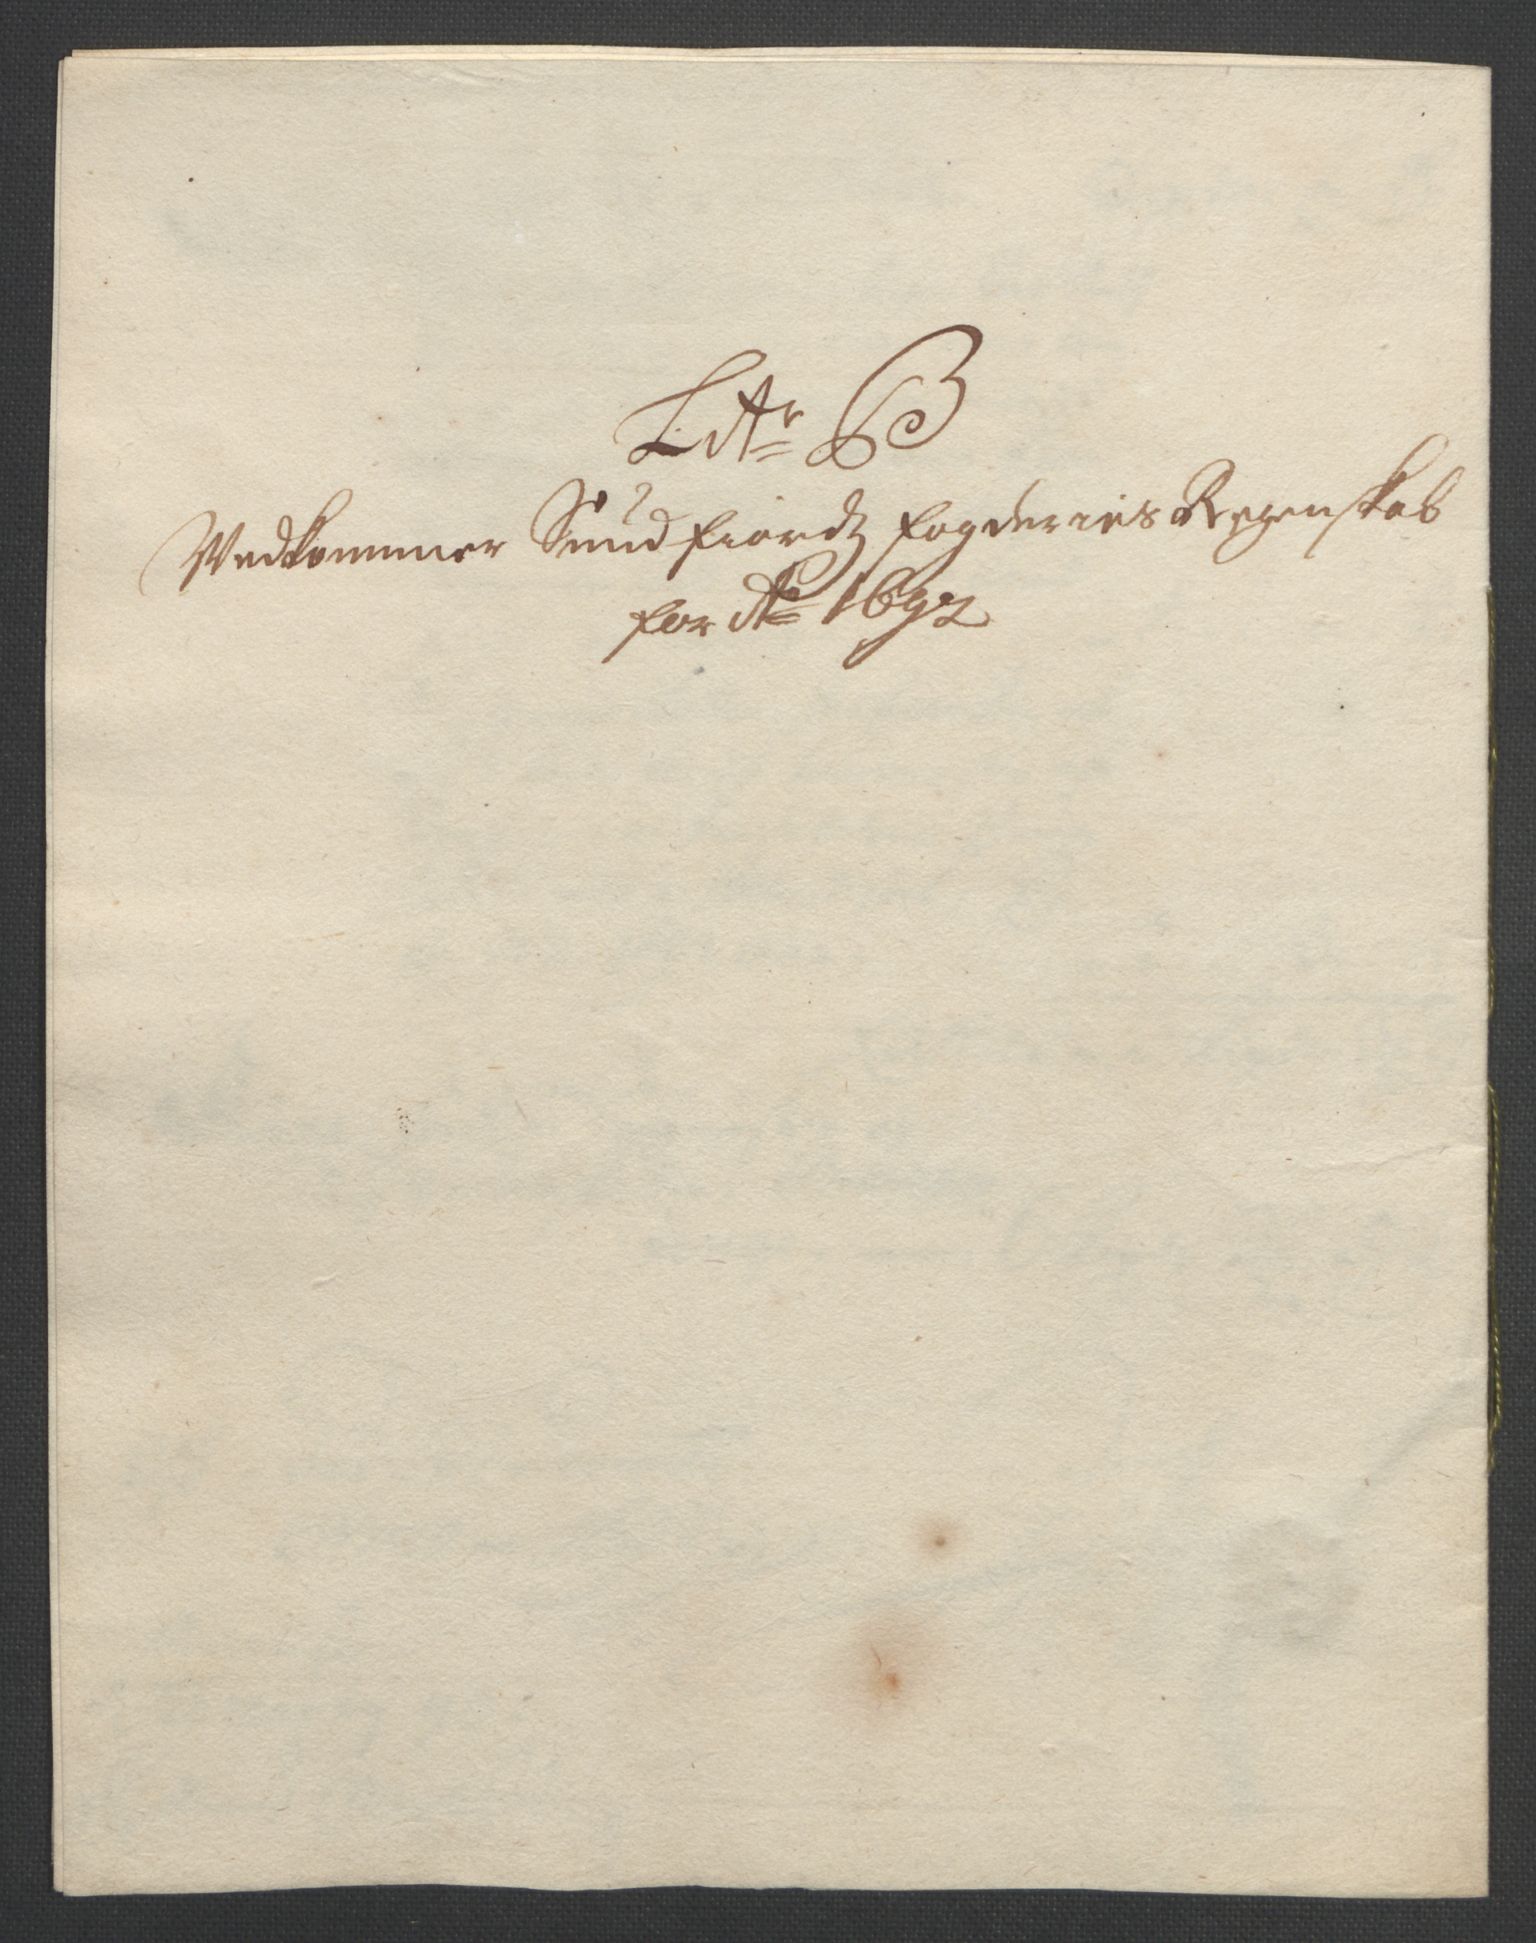 Litr B
Vedkommer Sundfiordz fogderies Regenskab
for Ao 1692